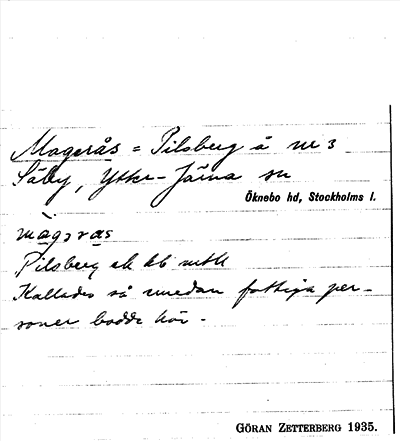 Magerås = Pilsberg å nr 3
Säby, Ytter-Järna sn
Öknebo hd, Stockholms l.
màgəras
Pilsberg ek kb
Kallades så medan fattiga per-
soner bodde här.
GÖRAN ZETTERBERG 1935.